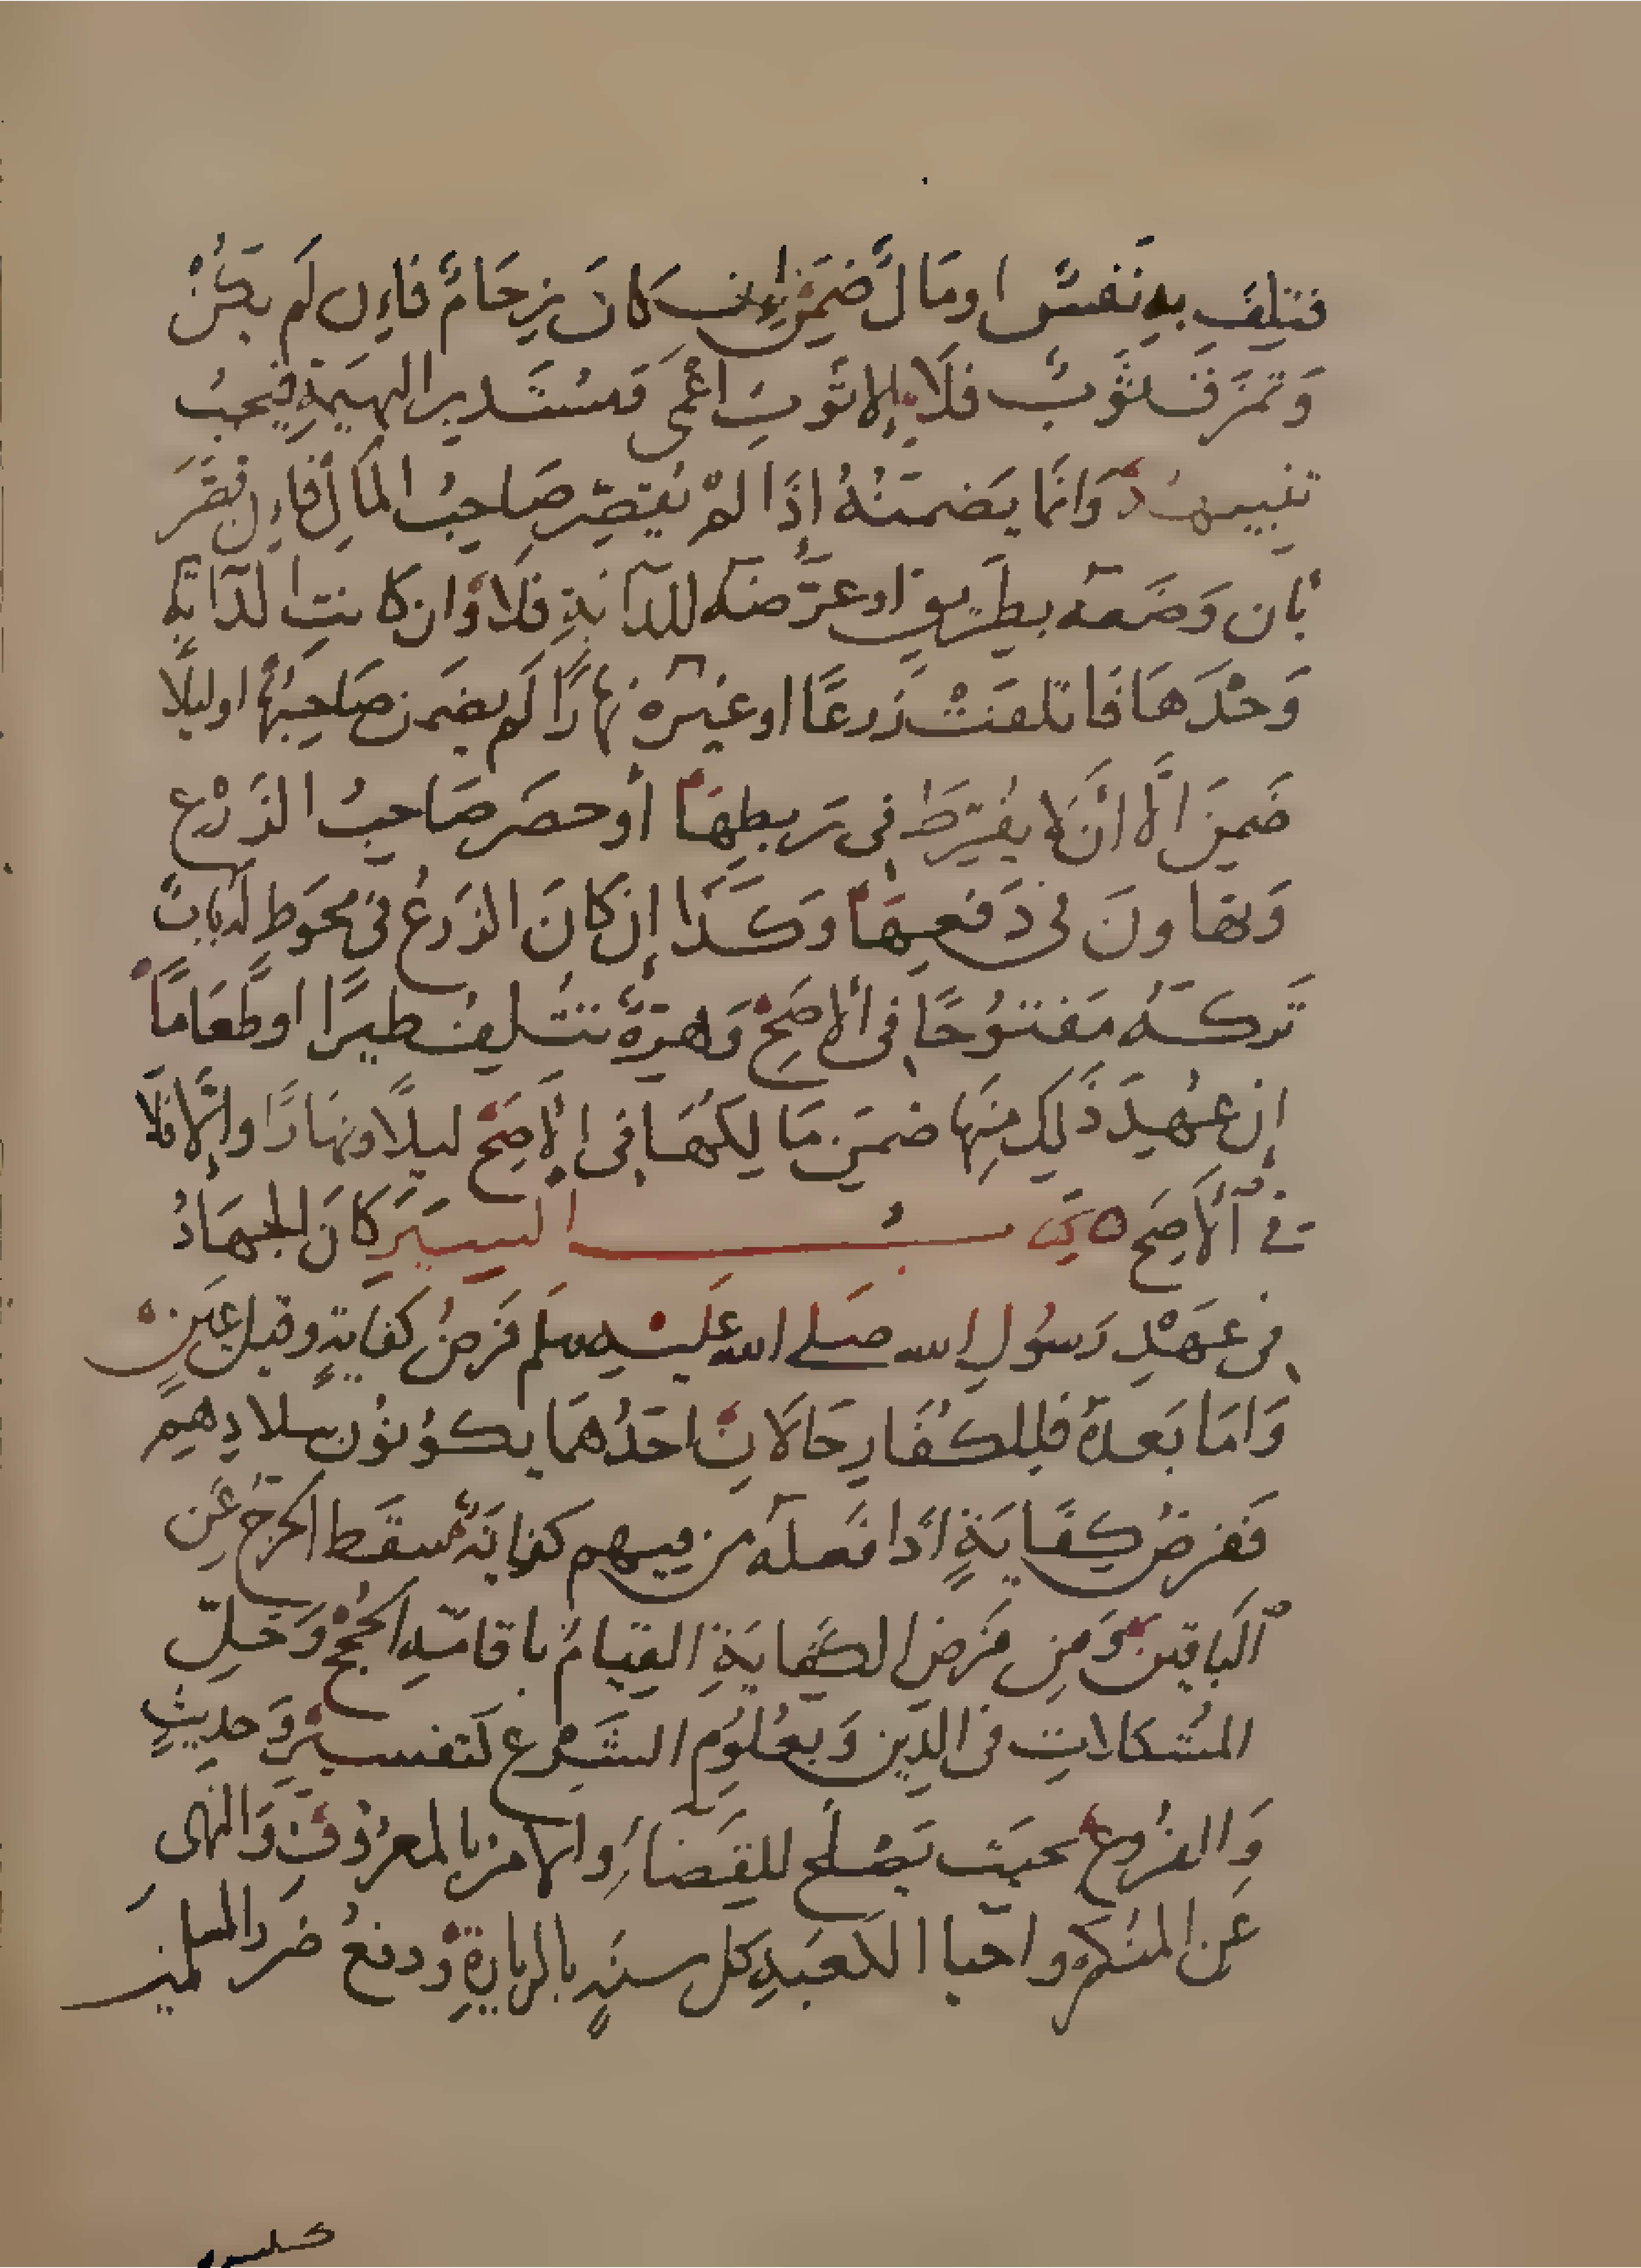 فتلف به نفس او مال ضمن ان كان زحام فإن لم يكن
وتمزق ثوب فلا إلا ثوب اعمى ومستدبر البهيمة فيجب
تنبيهه وانما يضمنه اذا لم يقصر صاحب المال فإن قصر
بأن وضعه بطريق او عرضه للدابة فلا وان كانت الدابة
وحدها فاتلفت زرعا او غيره نهارا لم يضمن صاحبها او ليلا
ضمن الا ان لا يفرط في ربطها أو حضر صاحب الزرع
وتهاون في دفعها وكذا إن كان الزرع في محوط له باب
تركه مفتوحا في الاصح وهرة تتلف طيرا او طعاما
إن عهد ذلك منها ضمن مالكها في الاصح ليلا ونهارا والا فلا
في الأصح ه كتاب السير كان الجهاد
في عهد رسول الله صلى الله عليه وسلم فرض كفاية وقيل عين
واما بعده فللكفار حالان احدهما يكونون ببلادهم
ففرض كفاية اذا فعله من فيهم كفاية سقط الحرج عن
الباقين ومن فرض الكفاية القيام باقامة الحجج وحل
المشكلات في الدين وبعلوم الشرع كتفسير وحديث
والفروع بحيث يصلح للقضاء والامر بالمعروف والنهي
عن المنكر واحيا الكعبة كل سنة بالزيارة ودفع ضرر المسلمين